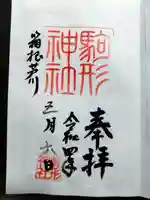 奉拝
令和四年
五月六日
駒形
神社
箱根芦川